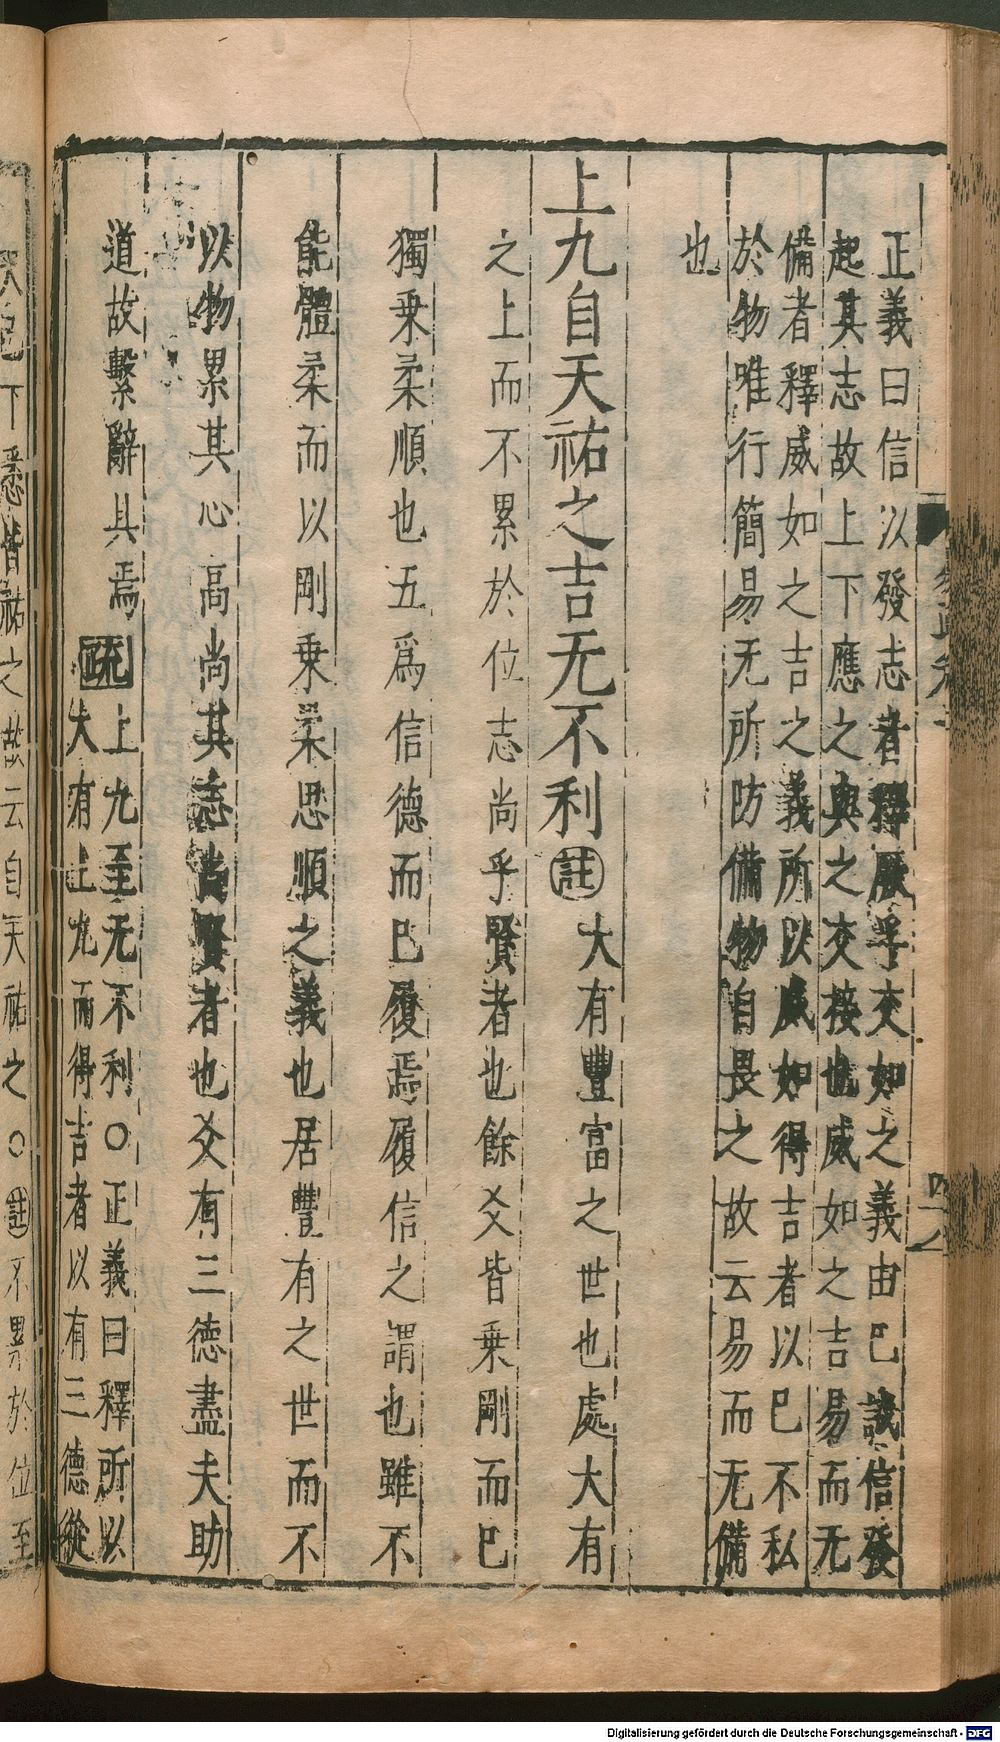 正義曰信以發志者釋厥孚交如之義由巳誠信發
起其志故上下應之與之交接也威如之吉易而无
備者釋威如之吉之義所以威如得吉者以巳不私
於物唯行簡易无所防備物自畏之故云易而无備
也
上九自天祐之吉无不利註大有豐富之世也處大有
之上而不累於位志尚乎賢者也餘爻皆乗剛而巳
獨乗柔順也五爲信德而巳履焉履信之謂也雖不
能體柔而以剛乗柔思順之義也居豐有之世而不
以物累其心高尚其志尚賢者也爻有三德盡夫助
道故繫辭具焉疏上九至无不利○正義曰釋所以
大有上九而得吉者以有三德從
下悉皆祐之故云自天祐之○註不累於位至
Digitalisierung gefördert durch die Deutsche Forschungsgemeinschaft - DFG